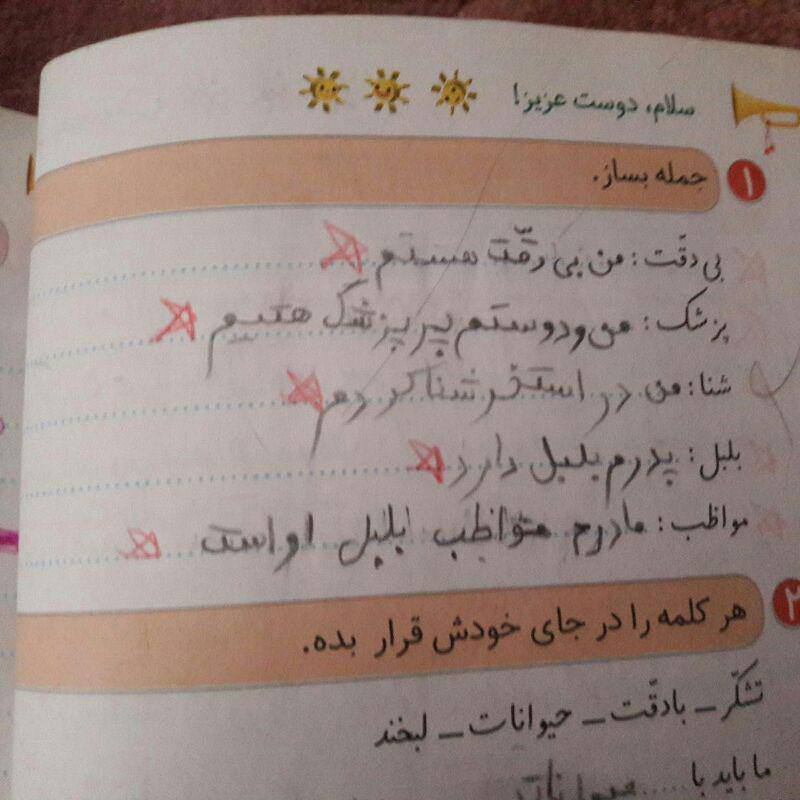 سلام، دوست عزیز!
۱ جمله بساز.
بی دقّت: من بی دقّت هستم
پزشک: من و دوستم پزشک هتیم
شنا: من در استخر شنا کردم
بلبل: پدرم بلبل دارد
مواظب: مادرم مواظب بلبل او است
۲ هر کلمه را در جای خودش قرار بده.
تشکّر – بادقّت – حیوانات – لبخند
ما باید با ..... حیوانات